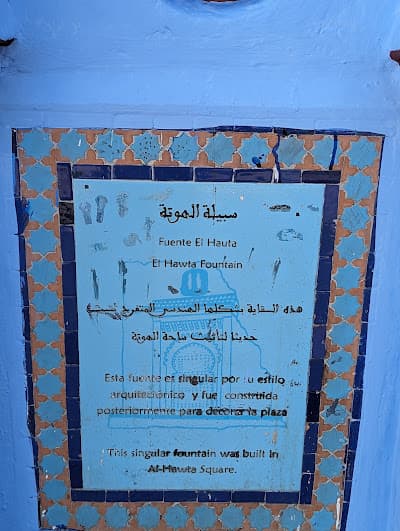 سبيلة الهوتة
Fuente El Hauta
El Hawta Fountain
هذه السقاية بشكلها الهندسي المتفرد
حديثا لتأثيث ساحة الهوتة
Esta fuente es singular por su estilo
arquitectónico y fue construida
posteriormente para decorar la plaza
This singular fountain was built in
Al-Hawta Square.